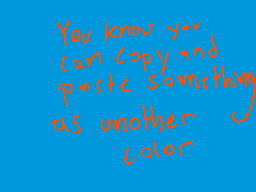 You know you
can copy and
paste something
as another
color